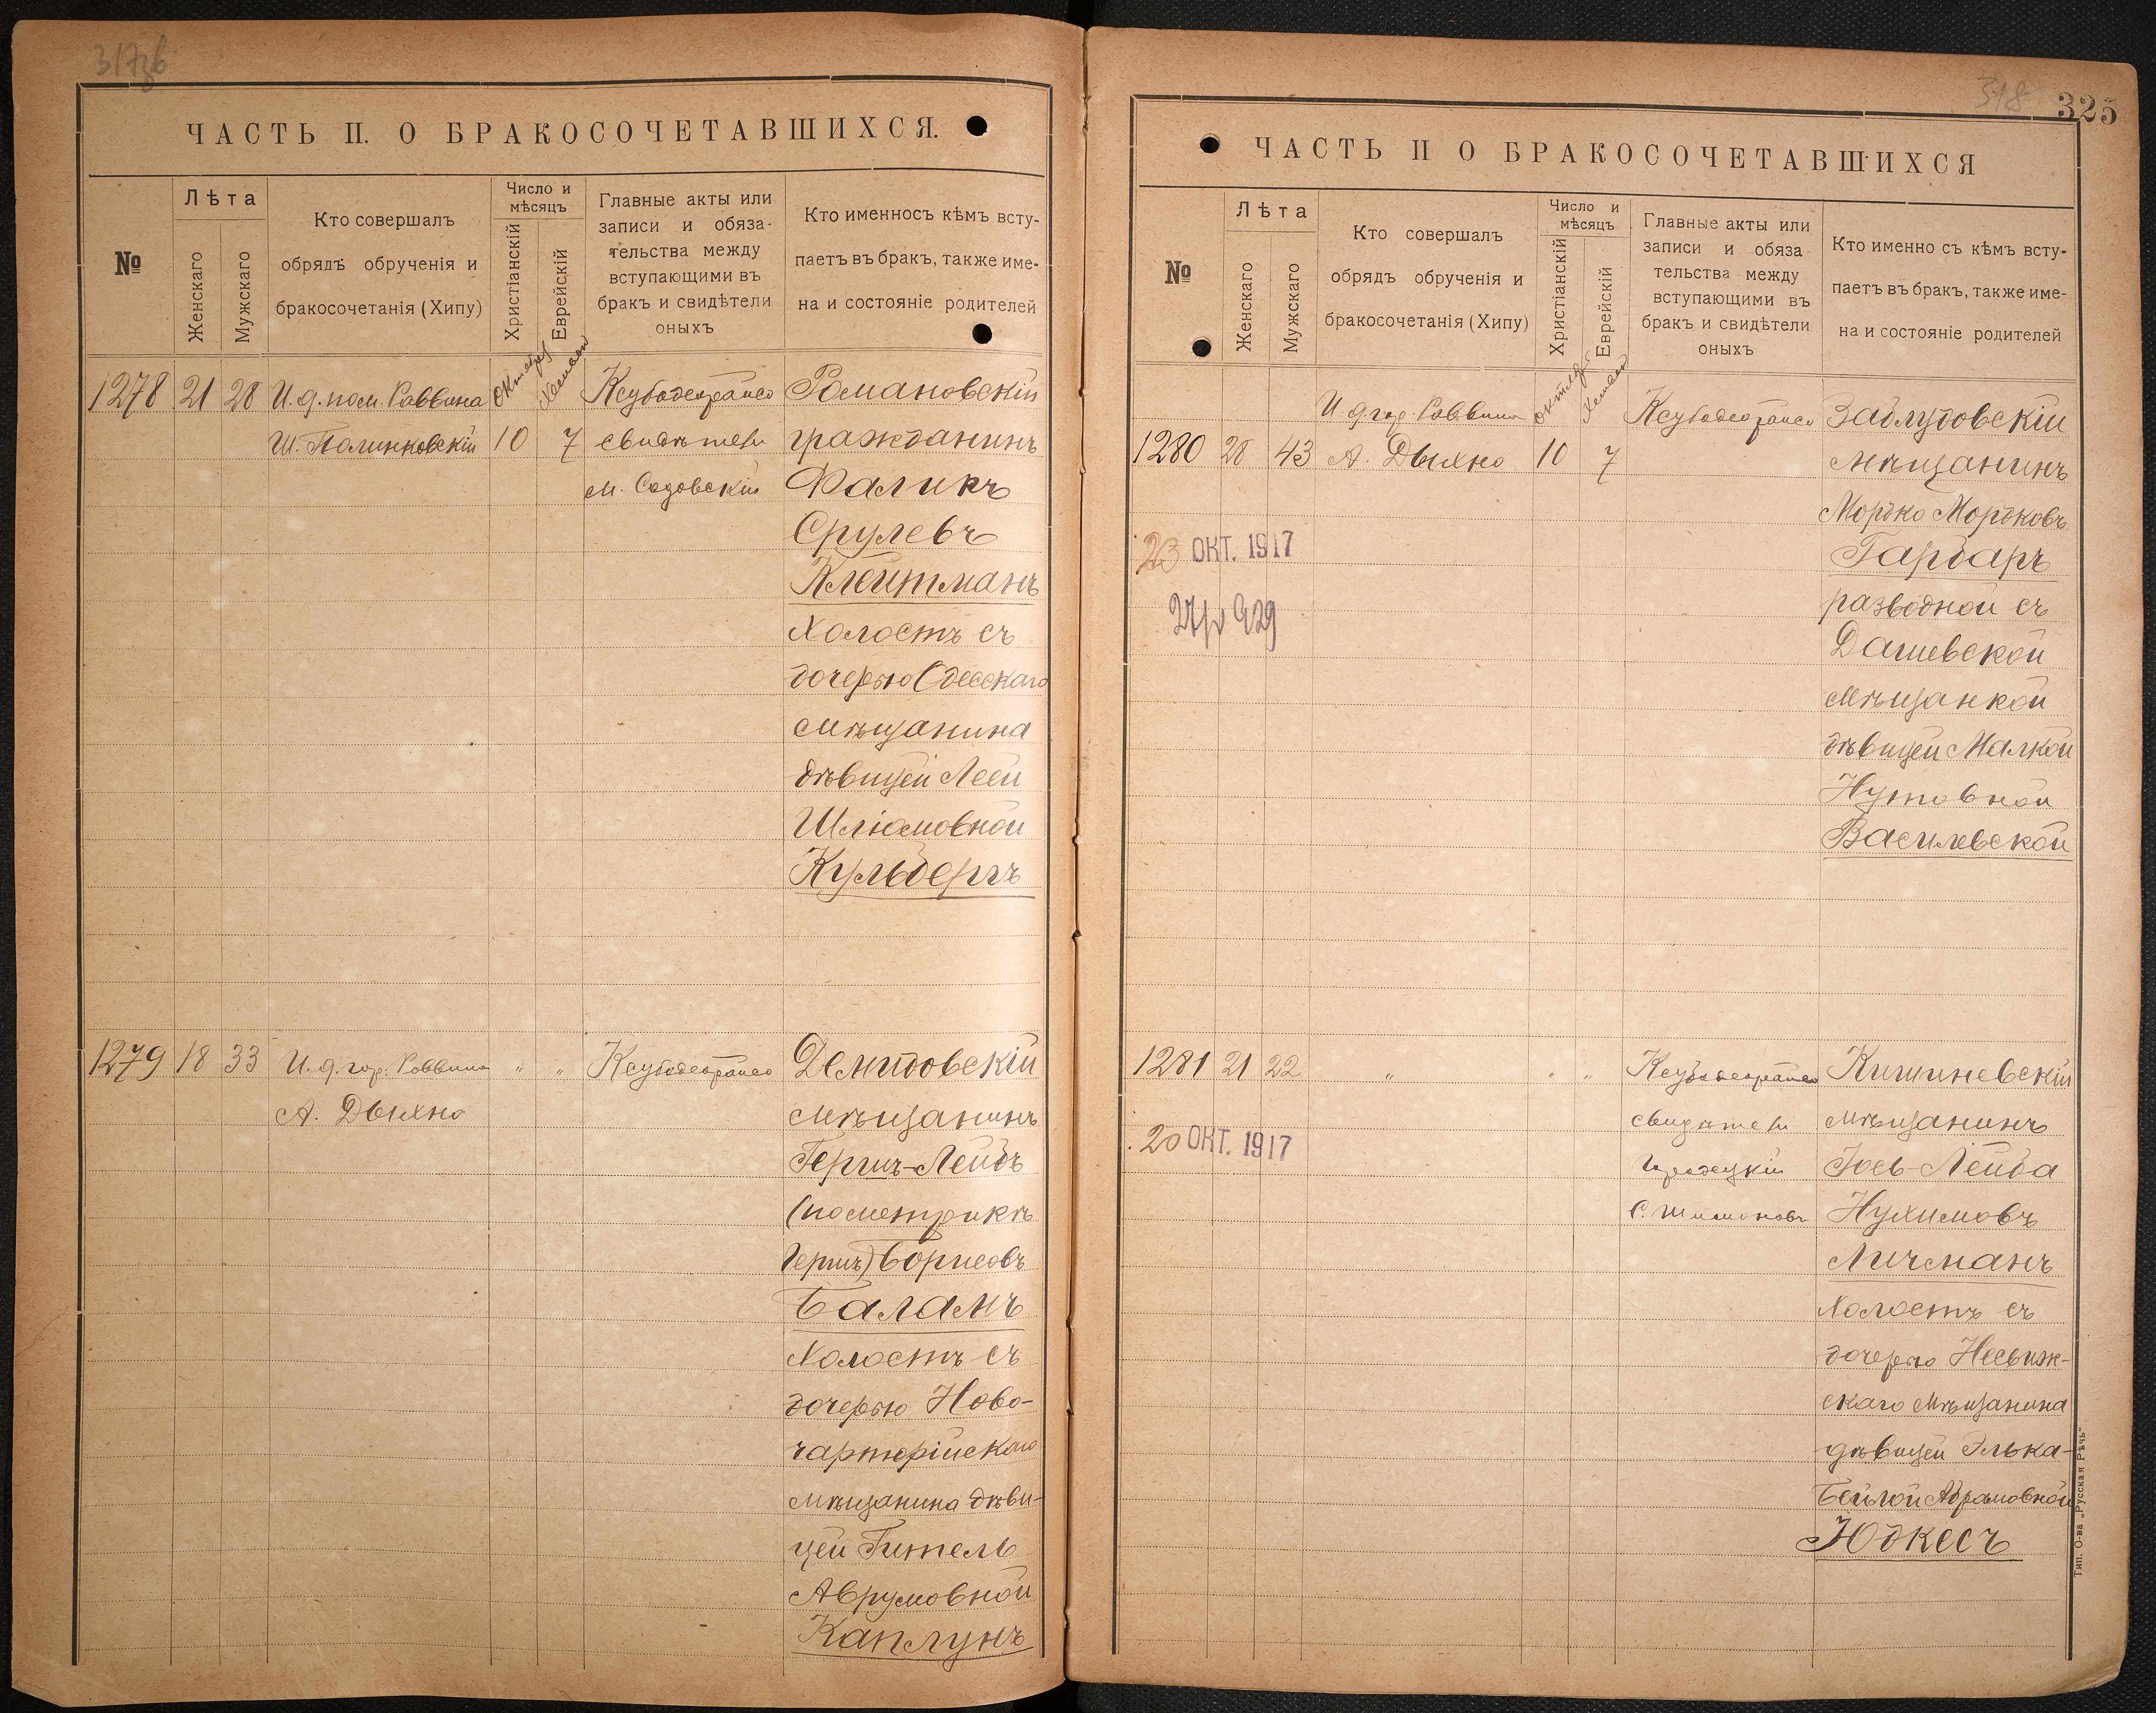 317
ЧАСТЬ II. О БРАКОСОЧЕТАВШИХСЯ.
№
Лѣта
Женскаго
Мужскаго
Кто совершалъ
обрядъ обрученія и
бракосочетанія (Хипу)
Число и
мѣсяцъ
Христіанскій
Еврейскій
Главные акты или
записи и обяза-
тельства между
вступающими въ
бракъ и свидѣтели
оныхъ
Кто именносъ кѣмъ всту-
паетъ въ бракъ, также име-
на и состояніе родителей
1278 21 28 И. д. пом. Раввина Октябрь Хешван Романовскій
Ш. Полинковскій 10 7 свидѣтели гражданинъ
М. Садовскій Фаликъ
Срулевъ
Клейтманъ
холостъ съ
дочерью Одесскаго
мѣщанина
дѣвицей Леей
Шліомовной
Кульбергъ
1279 18 33 И. д. гор. Раввина " " Демидовскій
А. Дыхно мѣщанинъ
Гершъ-Лейбъ
(по метрикѣ
Гершъ) Борисовъ
Баланъ
холостъ съ
дочерью Ново-
чарторійскаго
мѣщанина дѣви-
цей Гитель
Аврумовной
Каплунъ
318
325
ЧАСТЬ II О БРАКОСОЧЕТАВШИХСЯ
№
Лѣта
Женскаго
Мужскаго
Кто совершалъ
обрядъ обрученія и
бракосочетанія (Хипу)
Число и
мѣсяцъ
Христіанскій
Еврейскій
Главные акты или
записи и обяза
тельства между
вступающими въ
бракъ и свидѣтели
оныхъ
Кто именно съ кѣмъ всту-
паетъ въ бракъ, также име-
на и состояніе родителей
И. д. гор. Раввина октябрь Хешван Заблудовскій
1280 28 43 А. Дыхно 10 7 мѣщанинъ
Мордко Мордковъ
23 ОКТ. 1917
Гарбаръ
разводной съ
Дашевской
мѣщанкой
дѣвицей Малкой
Нутовной
Василевской
1281 21 22 " " " Кишиневскій
свидѣтели мѣщанинъ
20 ОКТ. 1917
Городецкій Іось-Лейба
С. Шимоновъ Нухимовъ
Личманъ
холостъ съ
дочерью Несвиж-
скаго мѣщанина
дѣвицей Элька-
Бейлой Абрамовной
Юдкесъ
Тип. О-ва „Русская Рѣчь“